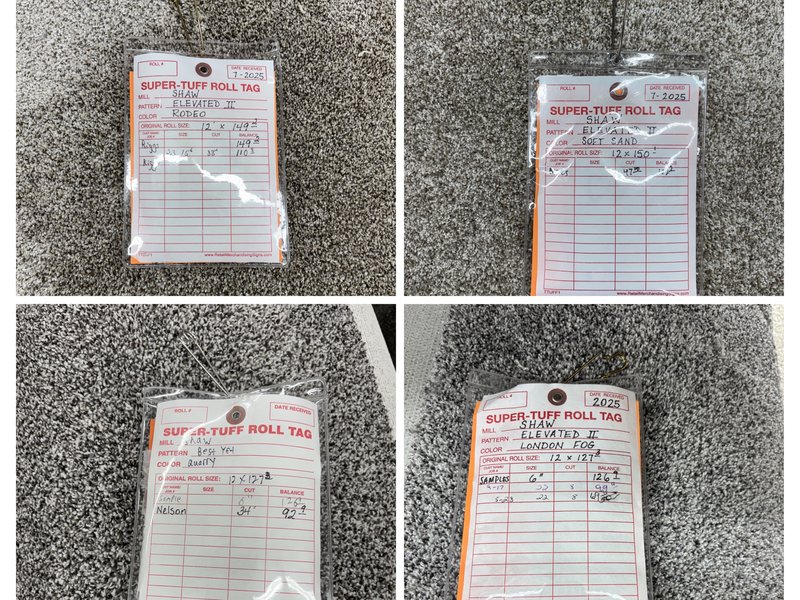 ROLL #
DATE RECEIVED
7-2025
SUPER-TUFF ROLL TAG
MILL SHAW
PATTERN ELEVATED II
COLOR RODEO
ORIGINAL ROLL SIZE: 12' x 149
CUST NAME/ JOB # SIZE CUT BALANCE
Riggs 149
38' 110
www.RetailMerchandisingSigns.com
ROLL #
DATE RECEIVED
7-2025
SUPER-TUFF ROLL TAG
MILL SHAW
PATTERN ELEVATED II
COLOR SOFT SAND
ORIGINAL ROLL SIZE: 12 x 150
CUST NAME/ JOB # SIZE CUT BALANCE
47
TTUFF1 www.RetailMerchandisingSigns.com
ROLL #
DATE RECEIVED
SUPER-TUFF ROLL TAG
MILL Shaw
PATTERN Best Yet
COLOR Quarry
ORIGINAL ROLL SIZE: 12 x 127
CUST NAME/ JOB # SIZE CUT BALANCE
126
Nelson 34' 92
ROLL #
DATE RECEIVED
2025
SUPER-TUFF ROLL TAG
MILL SHAW
PATTERN ELEVATED II
COLOR LONDON FOG
ORIGINAL ROLL SIZE: 12 x 127
CUST NAME/ JOB # SIZE CUT BALANCE
SAMPLES 6" 126
22 8 99
22 8